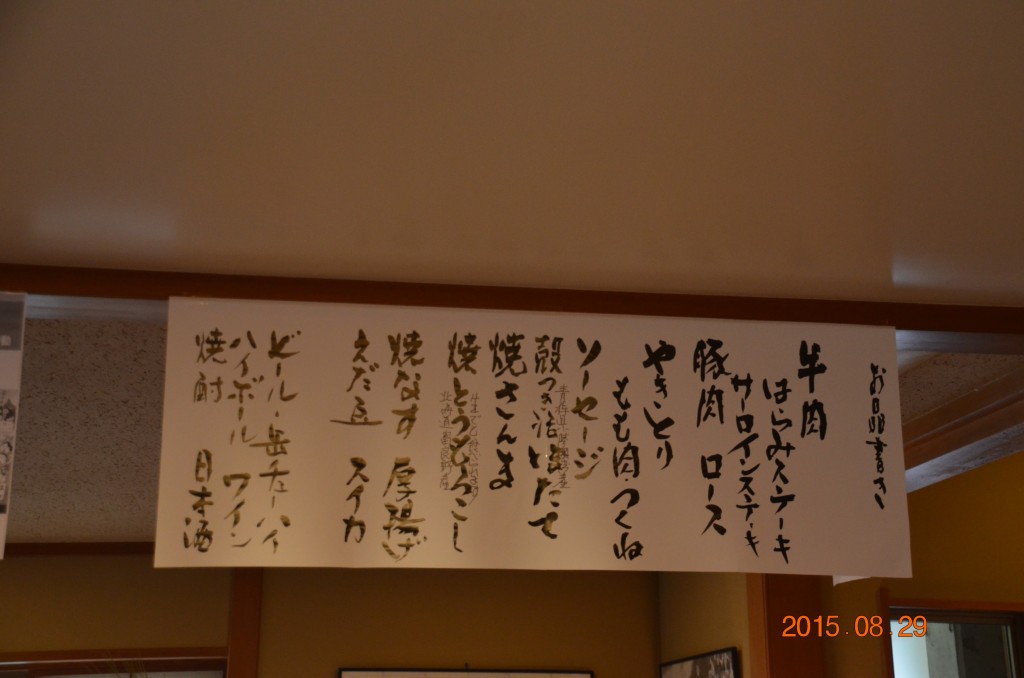 お品書き
牛肉
はらみステーキ
サーロインステーキ
豚肉 ロース
やきとり
もも肉・つくね
ソーセージ
殻つき活ほたて
焼さんま
焼とうもろこし
焼なす 厚揚げ
えだ豆 スイカ
ビール・缶チューハイ
ハイボール ワイン
焼酎 日本酒
2015.08.29